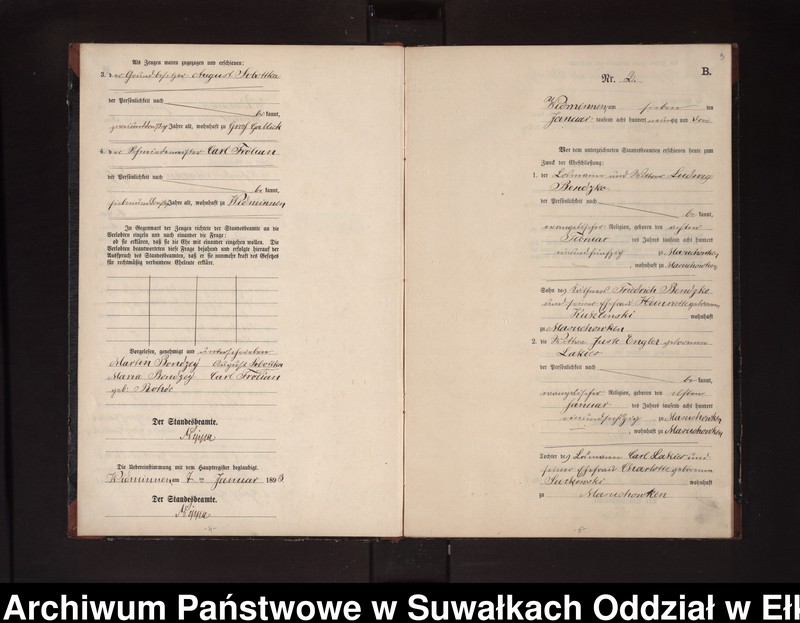 Als Zeugen waren zugezogen und erschienen:
3. der Grundbesitzer August Sobottka
der Persönlichkeit nach
be kannt,
Jahre alt, wohnhaft zu Groß Gablick
4. der Schmiedemeister Carl Frolian
der Persönlichkeit nach
be kannt,
Jahre alt, wohnhaft zu Widminnen
In Gegenwart der Zeugen richtete der Standesbeamte an die
Verlobten einzeln und nach einander die Frage:
ob sie erklären, daß sie die Ehe mit einander eingehen wollen. Die
Verlobten beantworteten diese Frage bejahend und erfolgte hierauf der
Ausspruch des Standesbeamten, daß er sie nunmehr kraft des Gesetzes
für rechtmäßig verbundene Eheleute erkläre.
Vorgelesen, genehmigt und unterschrieben
Martin Bondzey August Sobottka
Maria Bondzey Carl Frolian
geb. Rohde
Der Standesbeamte.
Die Uebereinstimmung mit dem Hauptregister beglaubigt.
Widminnen, am 7 ten Januar 1893
Der Standesbeamte.
-4-
3
B.
Nr. 2.
Widminnen, am sieben ten
Januar tausend acht hundert neunzig und drei
Vor dem unterzeichneten Standesbeamten erschienen heute zum
Zweck der Eheschließung:
1. der Losmann und Wittwer Ludwig
Bendzko
der Persönlichkeit nach
be kannt,
evangelischer Religion, geboren den
des Jahres tausend acht hundert
zu Masuchowken
, wohnhaft zu Masuchowken
Sohn des Friedrich Bendzko
und seiner Ehefrau Henriette geborenen
wohnhaft
zu Masuchowken
2. die Wittwe Juste Engler geborene
Lakies
der Persönlichkeit nach
be kannt,
evangelischer Religion, geboren den elften
Januar des Jahres tausend acht hundert
zu Masuchowken
, wohnhaft zu Masuchowken
Tochter des Losmann Carl Lakies und
seiner Ehefrau Charlotte geborenen
Suckowski wohnhaft
zu Masuchowken
-5-
Archiwum Państwowe w Suwałkach Oddział w Ełk